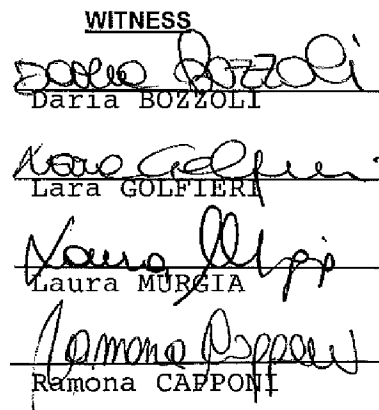 WITNESS
Daria Bozzoli
Daria BOZZOLI
Lara Golfieri
Lara GOLFIERI
Laura Murgia
Laura MURGIA
Ramona Capponi
Ramona CAPPONI